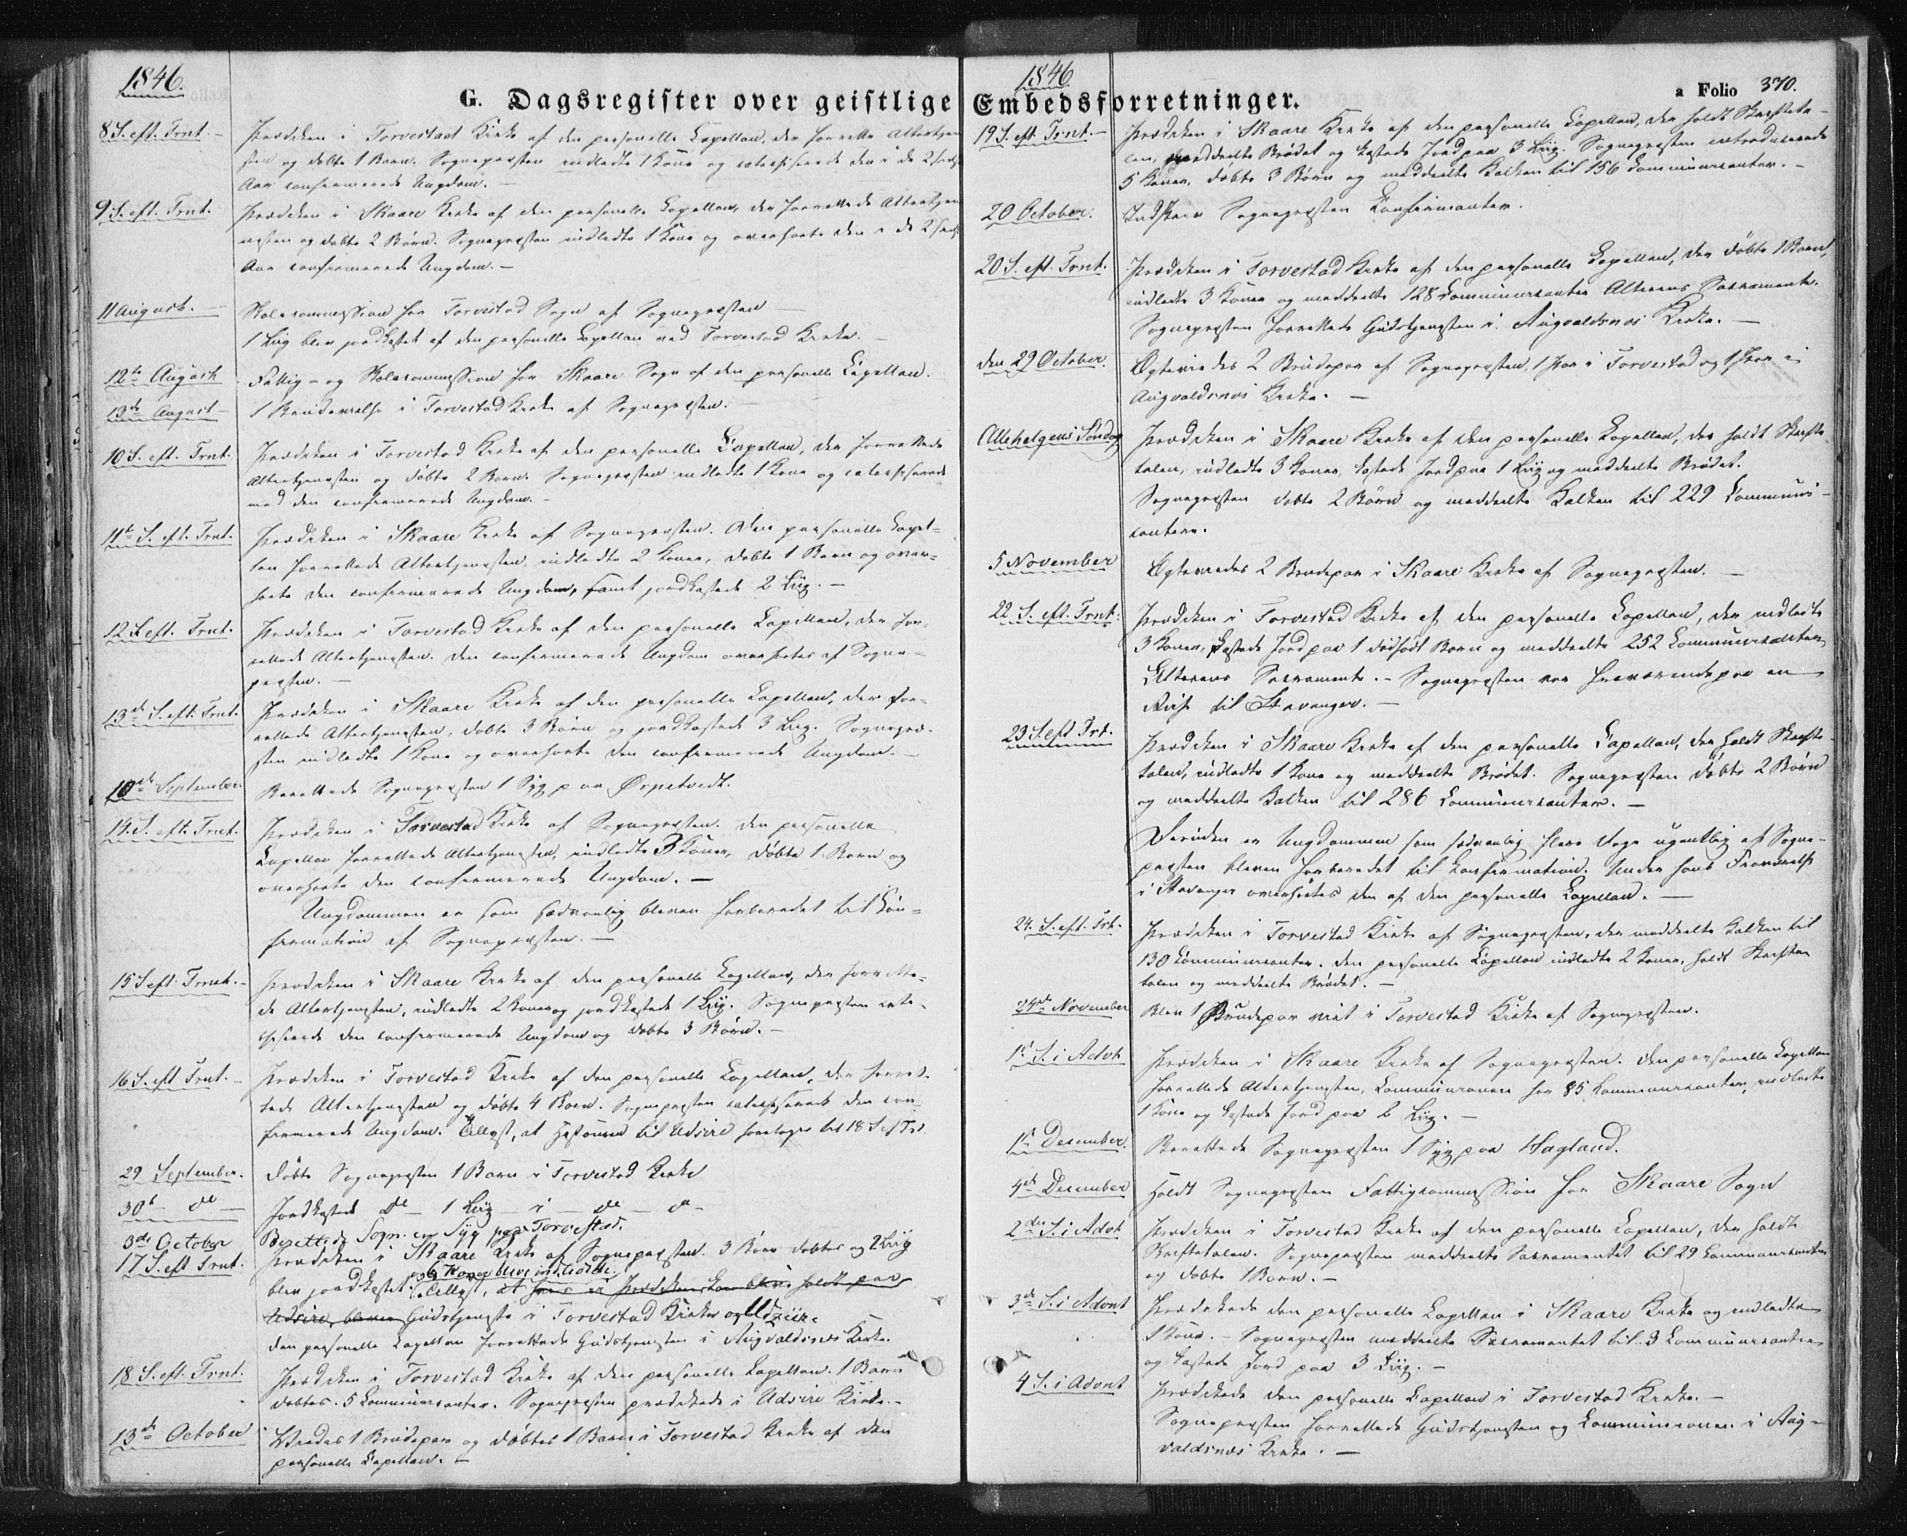 1846.
G. Dagsregister over geistlige
8 S. eft. Trnt. Prædiken i Torvestad Kirke af den personelle Capellan, der forrettede Altertjene-
sten og døbte 1 Barn. Sognepræsten indledte 1 Kone og catechiserede den i de 2 sidste
Aar confirmerede Ungdom. —
9 S. eft. Trnt. Prædiken i Skaare Kirke af den personelle Capellan, der forrettede Altertje-
nesten og døbte 2 Børn. Sognepræsten indledte 1 Kone og overhørte den i de 2 sidste
Aar confirmerede Ungdom. —
11 August. Skolecommission for Torvestad Sogn af Sognepræsten —
1 Liig blev jordkastet af den personelle Capellan ved Torvestad Kirke. —
12te August Fattig- og Skolecommission for Skaare Sogn af den personelle Capellan.
13de August 1 Brudevielse i Torvestad Kirke af Sognepræsten. —
10 S. eft. Trnt. Prædiken i Torvestad Kirke af den personelle Capellan, der forrettede
Altertjenesten og døbte 2 Børn. Sognepræsten indledte 1 Kone og catechiserede
med den confirmerede Ungdom. —
11te S. eft. Trnt. Prædiken i Skaare Kirke af Sognepræsten. Den personelle Capel-
lan forrettede Altertjenesten, indledte 2 Koner, døbte 1 Barn og over-
hørte den confirmerede Ungdom, samt jordkastede 2 Liig. —
12 S. eft. Trnt. Prædiken i Torvestad Kirke af den personelle Capellan, der for-
rettede Altertjenesten. Den confirmerede Ungdom overhørtes af Sogne-
præsten. —
13de S. eft. Trnt. Prædiken i Skaare Kirke af den personelle Capellan, der for-
rettede Altertjenesten, døbte 3 Børn og jordkastede 3 Liig. Sognepræ-
sten indledte 1 Kone og overhørte den confirmerede Ungdom. —
10de September Berettede Sognepræsten 1 Syg paa Ørpetvedt.
14. S. eft. Trnt. Prædiken i Torvestad Kirke af Sognepræsten. Den personelle
Capellan forrettede Altertjenesten, indledte 3 Koner, døbte 1 Barn og
overhørte den confirmerede Ungdom. —
Ungdommen er som sædvanlig bleven forberedet til Con-
firmation af Sognepræsten. —
15 S. eft. Trnt. Prædiken i Skaare Kirke af den personelle Capellan, der forrette-
de Altertjenesten, indledte 2 Koner og jordkastede 1 Liig. Sognepræsten cate-
chiserede den confirmerede Ungdom og døbte 3 Børn. —
16 S. eft. Trnt. Prædiken i Torvestad Kirke af den personelle Capellan, der forret-
tede Altertjenesten og døbte 4 Børn. Sognepræsten catechiserede den con-
firmerede Ungdom. Tillyst, at til Udsire foretages til 18 S. ef Tr.
29 September. Døbte Sognepræsten 1 Barn i Torvestad Kirke
30te — do — Jordkastede do — 1 Liig — i — do — do —
3de October Berettede Sogn. en Syg paa Torvestad.
17 S. eft Trnt. Prædiken i Skaare Kirke af Sognepræsten. 3 Børn døbtes og 2 Liig
blev jordkastet. og 6 Koner bleve indledte. Tillyst, at Prædiken kan blive holdt paa
Udsire, bleven Gudstjeneste i Torvestad Kirke og Udziire.
Den personelle Capellan forrettede Gudstjenesten i Augvaldsnes Kirke.
18 S. eft. Trnt. Prædiken i Torvestad Kirke af den personelle Capellan. 1 Barn
døbtes. 5 Communicanter. Sognepræsten prædikede i Udsire Kirke. —
13de October Viedes 1 Brudepar og døbtes 1 Barn i Torvestad Kirke af den
personelle Capellan. —
1846
Embedsforretninger. a Folio 370.
19 S. eft. Trnt. — Prædiken i Skaare Kirke af den personelle Capellan, der holdt Skrifteta-
len, meddeelte Brødet og kastede Jord paa 3 Liig. Sognepræsten introducerede
5 Koner, døbte 3 Børn og meddeelte Kalken til 156 Communicanter. —
20 October. Indskrev Sognepræsten Confirmanter.
20 S. eft. Trnt. Prædiken i Torvestad Kirke af den personelle Capellan, der døbte 1 Barn,
indledte 3 Koner og meddeelte 128 Communicanter Alterens Sacramente.
Sognepræsten forrettede Gudstjenesten i Augvaldsnes Kirke. —
den 29 October. Ægteviedes 2 Brudepar af Sognepræsten, 1 Par i Torvestad og 1 Par i
Augvaldsnes Kirke. —
Allehelgens Søndag Prædiken i Skaare Kirke af den personelle Capellan, der holdt Skrifte-
talen, indledte 3 Koner, kastede Jord paa 1 Liig og meddeelte Brødet.
Sognepræsten døbte 2 Børn og meddeelte Kalken til 229 Communi-
canter.
5 November Ægteviedes 2 Brudepar i Skaare Kirke af Sognepræsten. —
22 S. eft. Trnt: Prædiken i Torvestad Kirke af den personelle Capellan, der indledte
3 Koner, kastede Jord paa 1 dødfødt Barn og meddeelte 252 Communicanter
Alterens Sacramente. — Sognepræsten var fraværende paa en
Reise til Stavanger. —
23 S. eft Trt. Prædiken i Skaare Kirke af den personelle Capellan, der holdt Skrifte-
talen, indledte 1 Kone og meddeelte Brødet. Sognepræsten døbte 2 Børn
og meddeelte Kalken til 286 Communicanter. —
Desuden er Ungdommen som sædvanlig flere Dage ugentlig af Sogne-
præsten bleven forberedet til Confirmation. Under hans Fraværelse
i Stavanger overhørtes den af den personelle Capellan. —
24. S. eft. Trt. Prædiken i Torvestad Kirke af Sognepræsten, der meddeelte Kalken til
130 Communicanter. Den personelle Capellan indledte 2 Koner, holdt Skrifte-
talen og meddeelte Brødet. —
24de November Blev 1 Brudepar viet i Torvestad Kirke af Sognepræsten.
1ste S. i Advt. Prædiken i Skaare Kirke af Sognepræsten. Den personelle Capellan
forrettede Altertjenesten, Communionen for 85 Communicanter, indledte
1 Kone og kastede Jord paa 2 Liig. —
1ste December. Berettede Sognepræsten 1 Syg paa Hagland.
4de December Holdt Sognepræsten Fattigcommission for Skaare Sogn
2den S. i Advt Prædiken i Torvestad Kirke af den personelle Capellan, der holdt
Skriftetalen. Sognepræsten meddeelte Sacramentet til 29 Communicanter
og døbte 1 Barn. —
3de S. i Advent Prædikede den personelle Capellan i Skaare Kirke og indledte
1 Kone. — Sognepræsten meddeelte Sacramentet til 3 Communicanter
og kastede Jord paa 3 Liig. —
4 S. i Advent Prædikede den personelle Capellan i Torvestad Kirke. —
Sognepræsten forrettede Gudstjenesten og Communionen i Aug-
valdsnes Kirke. —